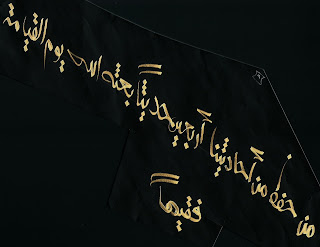 من حفظ من أحاديثنا أربعين حديثاً بعثه الله يوم القيامة
فقيهاً